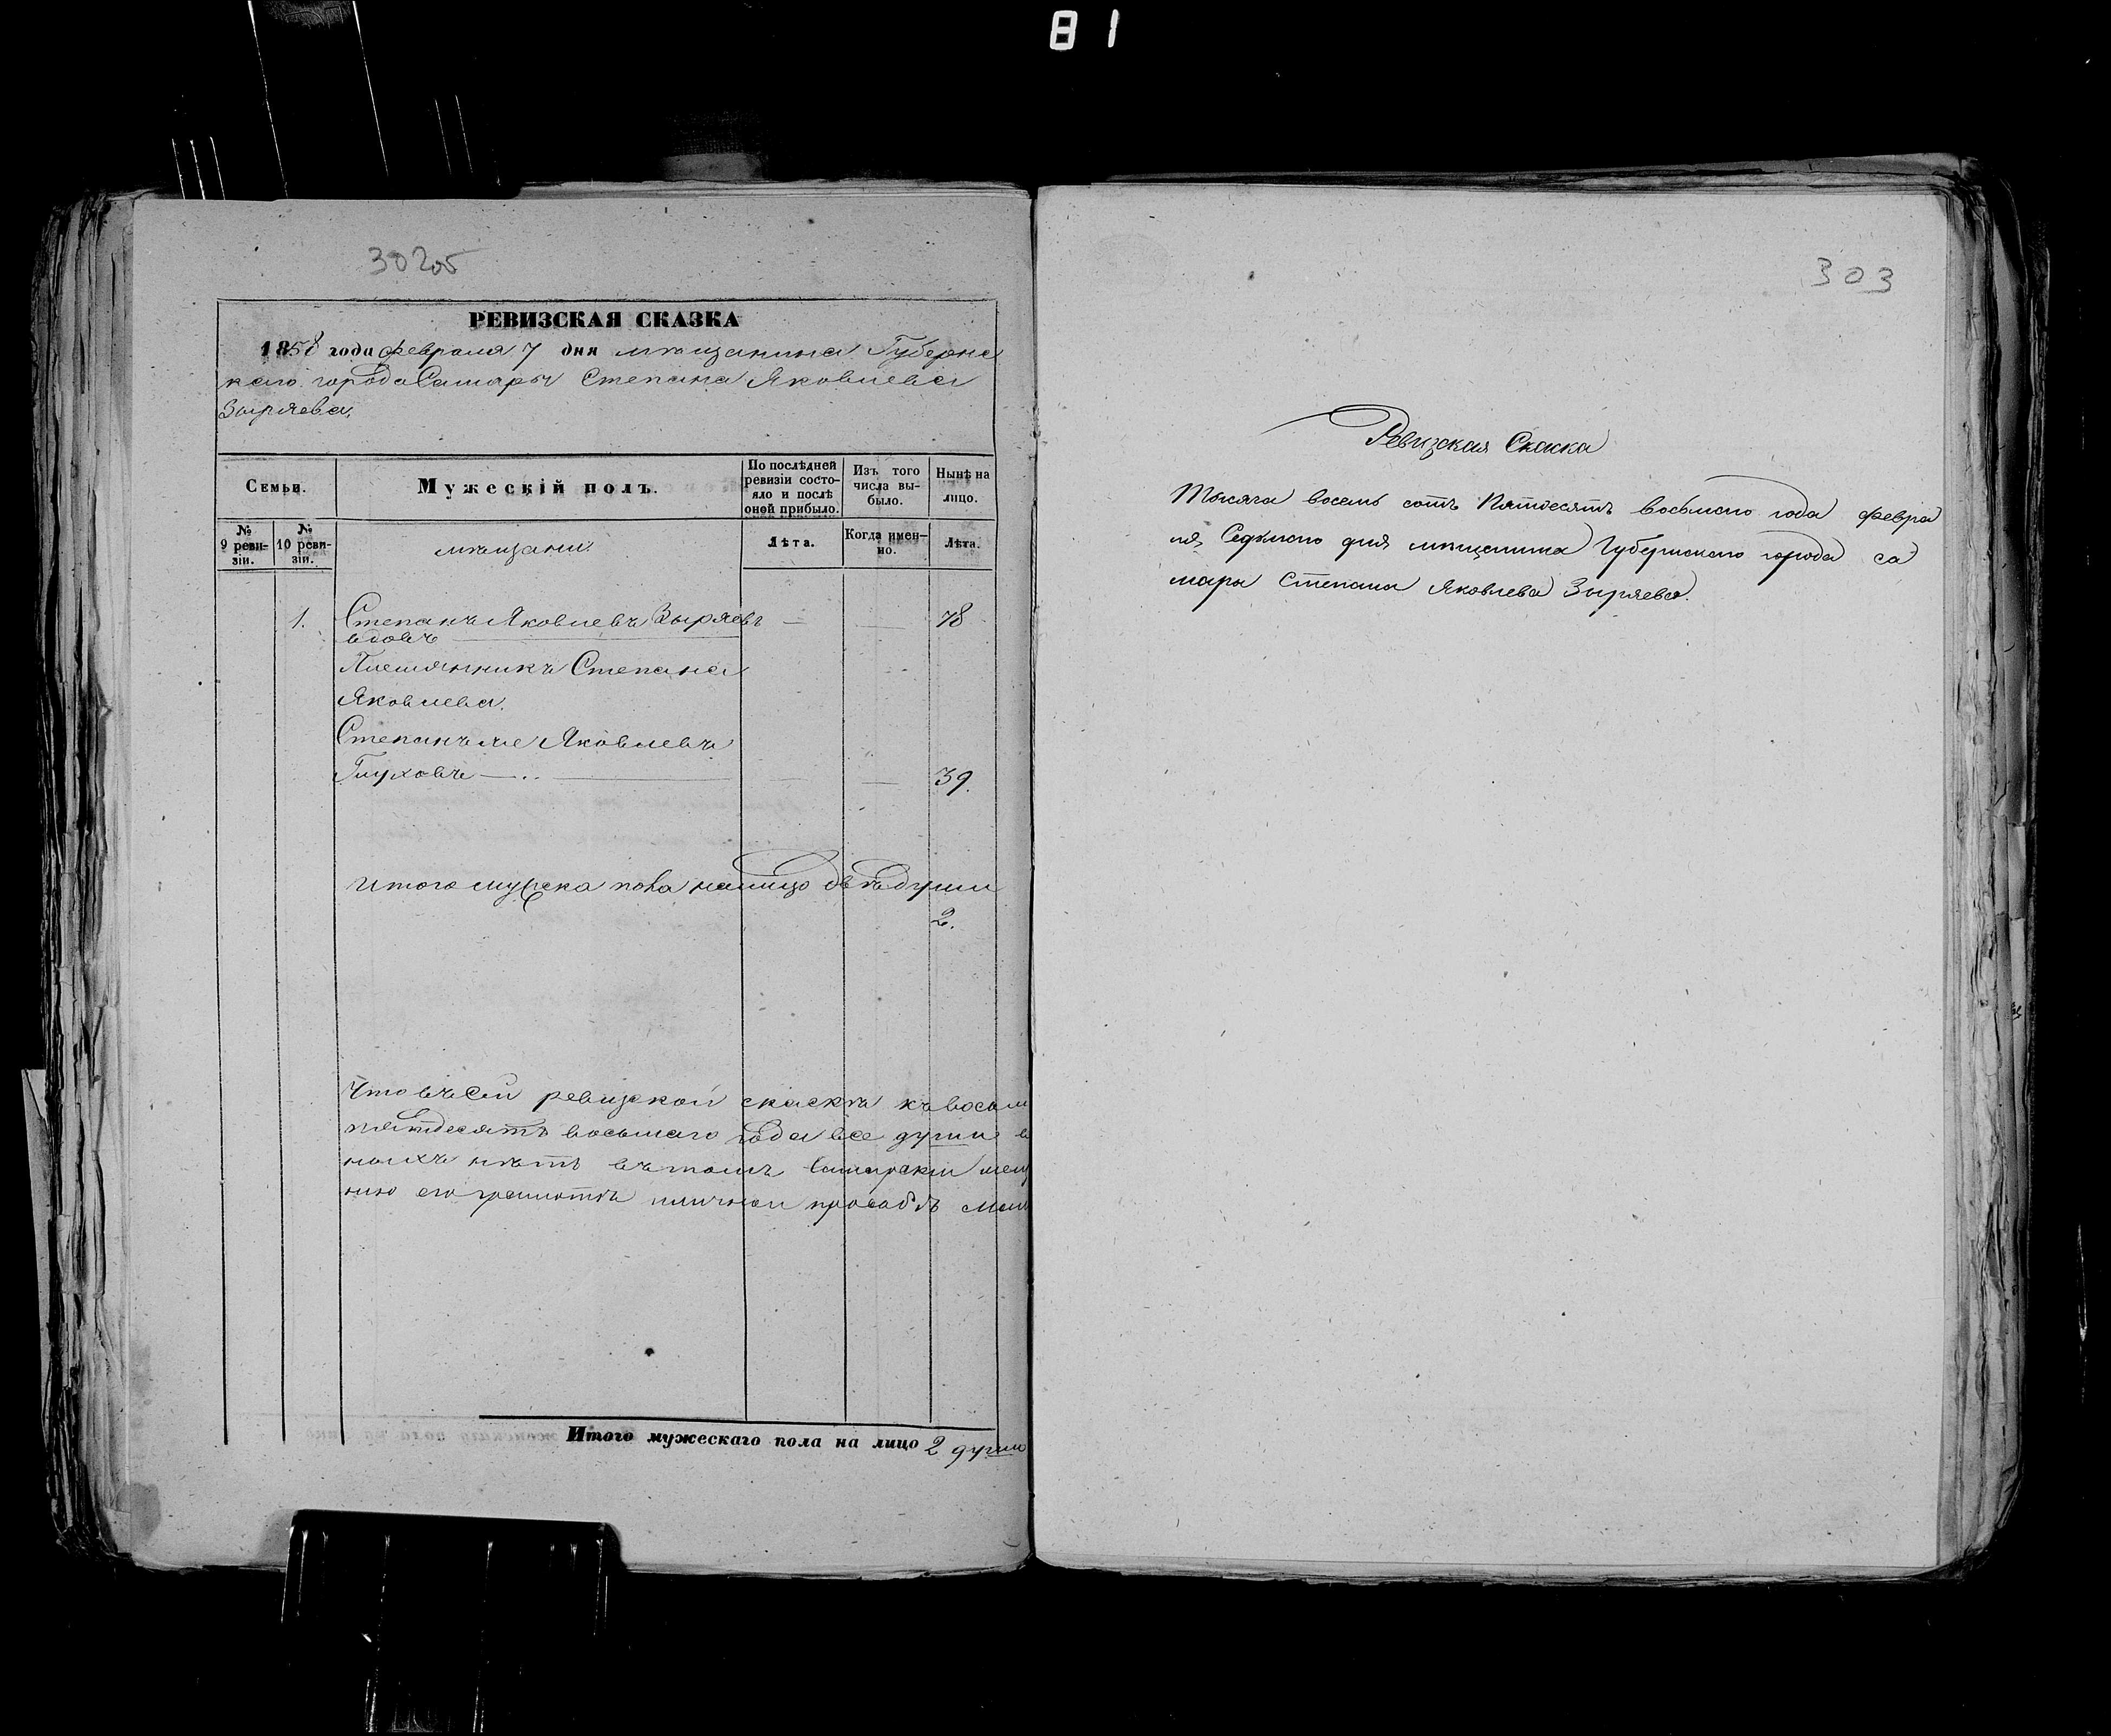 81
302об
РЕВИЗСКАЯ СКАЗКА
1858 года февраля 7 дня мѣщанина Губернс
каго города Самары Степана Яковлева
Зыряева.
Семьи.
Мужескій полъ.
По послѣдней ревизіи состояло и послѣ оной прибыло.
Изъ того числа выбыло.
Нынѣ на лицо.
№ 9 ревизіи.
№ 10 ревизіи.
мѣщани
Лѣта.
Когда именно.
Лѣта.
1. Степанъ Яковлевъ Зыряевъ — — 78
вдовъ
Племянникъ Степана
Яковлева.
Степанъ же Яковлевъ
Глуховъ — 39.
Итого мужска пола налицо двѣ души
2.
Что въ сей ревизской скаскѣ
пятдесятъ восьмаго года все души в
нѣтъ въ томъ Самарски мещ
нию его грамотѣ личной прозбѣ
Итого мужескаго пола на лицо 2 души
303
Ревизская Скаска
Тысяча восемь сотъ Пятдесятъ восьмого года февра
ля, Седьмого дня мѣщанина Губернского города Са
мары Степана Яковлева Зыряева.